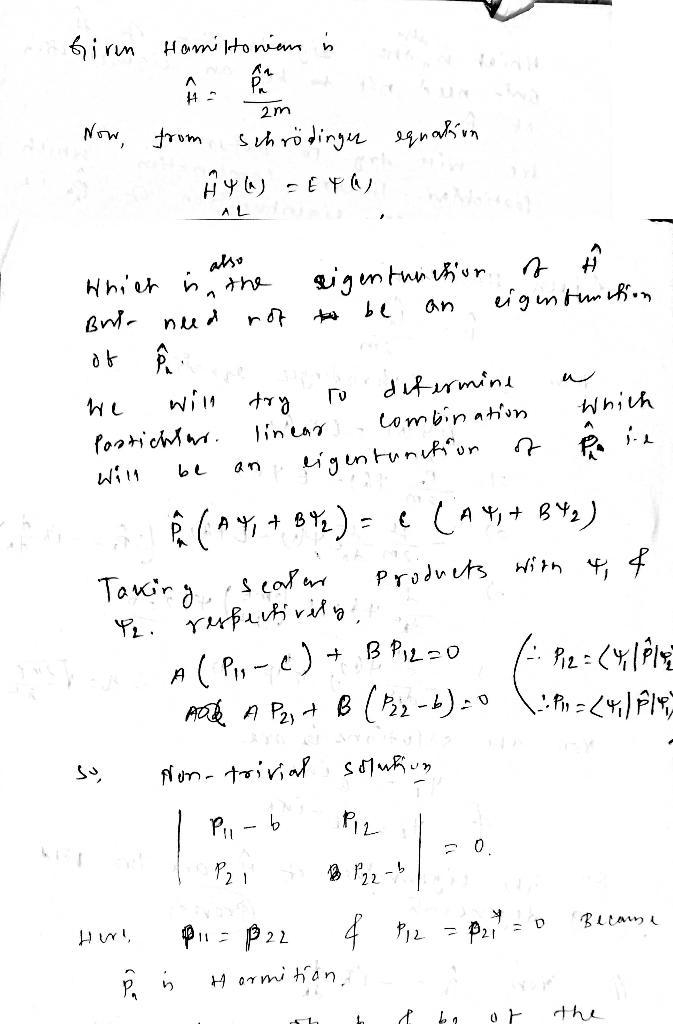 Given Hamiltonian is
Ĥ = p̂ₓ² / 2m
Now, from schrödinger equation
Ĥ Ψ(x) = E Ψ(x)
Which is also the eigenfunction of Ĥ
But need not be an eigenfunction
of p̂ₓ.
We will try to determine a
Particular linear combination which
will be an eigenfunction of p̂ₓ i.e
p̂ₓ (AΨ₁ + BΨ₂) = c (AΨ₁ + BΨ₂)
Taking scalar products with Ψ₁ &
Ψ₂. respectively,
A (P₁₁ - c) + B P₁₂ = 0 (∵ P₁₂ = <Ψ₁|p̂|Ψ₂
A P₂₁ + B (P₂₂ - b) = 0 ∴ P₁₁ = <Ψ₁|p̂|Ψ₁)
So, Non-trivial solution
| P₁₁ - b P₁₂ |
| P₂₁ P₂₂ - b | = 0.
Here, p₁₁ = p₂₂ & p₁₂ = p₂₁* = 0 Because
p̂ₓ is Hormitian.
of the